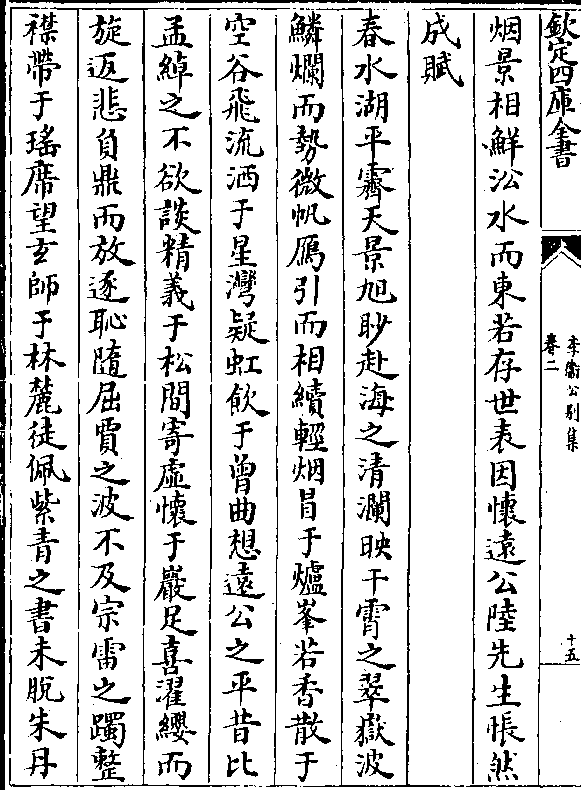 欽定四庫全書
李衛公別集
卷二
十五
烟景相鮮沿水而東若存世表因懷遠公陸先生悵然
成賦
春水湖平霽天景旭眇赴海之清瀾映干霄之翠嶽波
鱗爛而勢微帆鴈引而相續輕烟冒于爐峯若香散于
空谷飛流洒于星灣疑虹飲于曾曲想遠公之平昔比
孟綽之不欲談精義于松間寄虛懷于巖足喜濯纓而
旋返悲負鼎而放逐恥隨屈賈之波不及宗雷之躅整
襟帶于瑤席望玄師于林麓徒佩紫青之書未脫朱丹